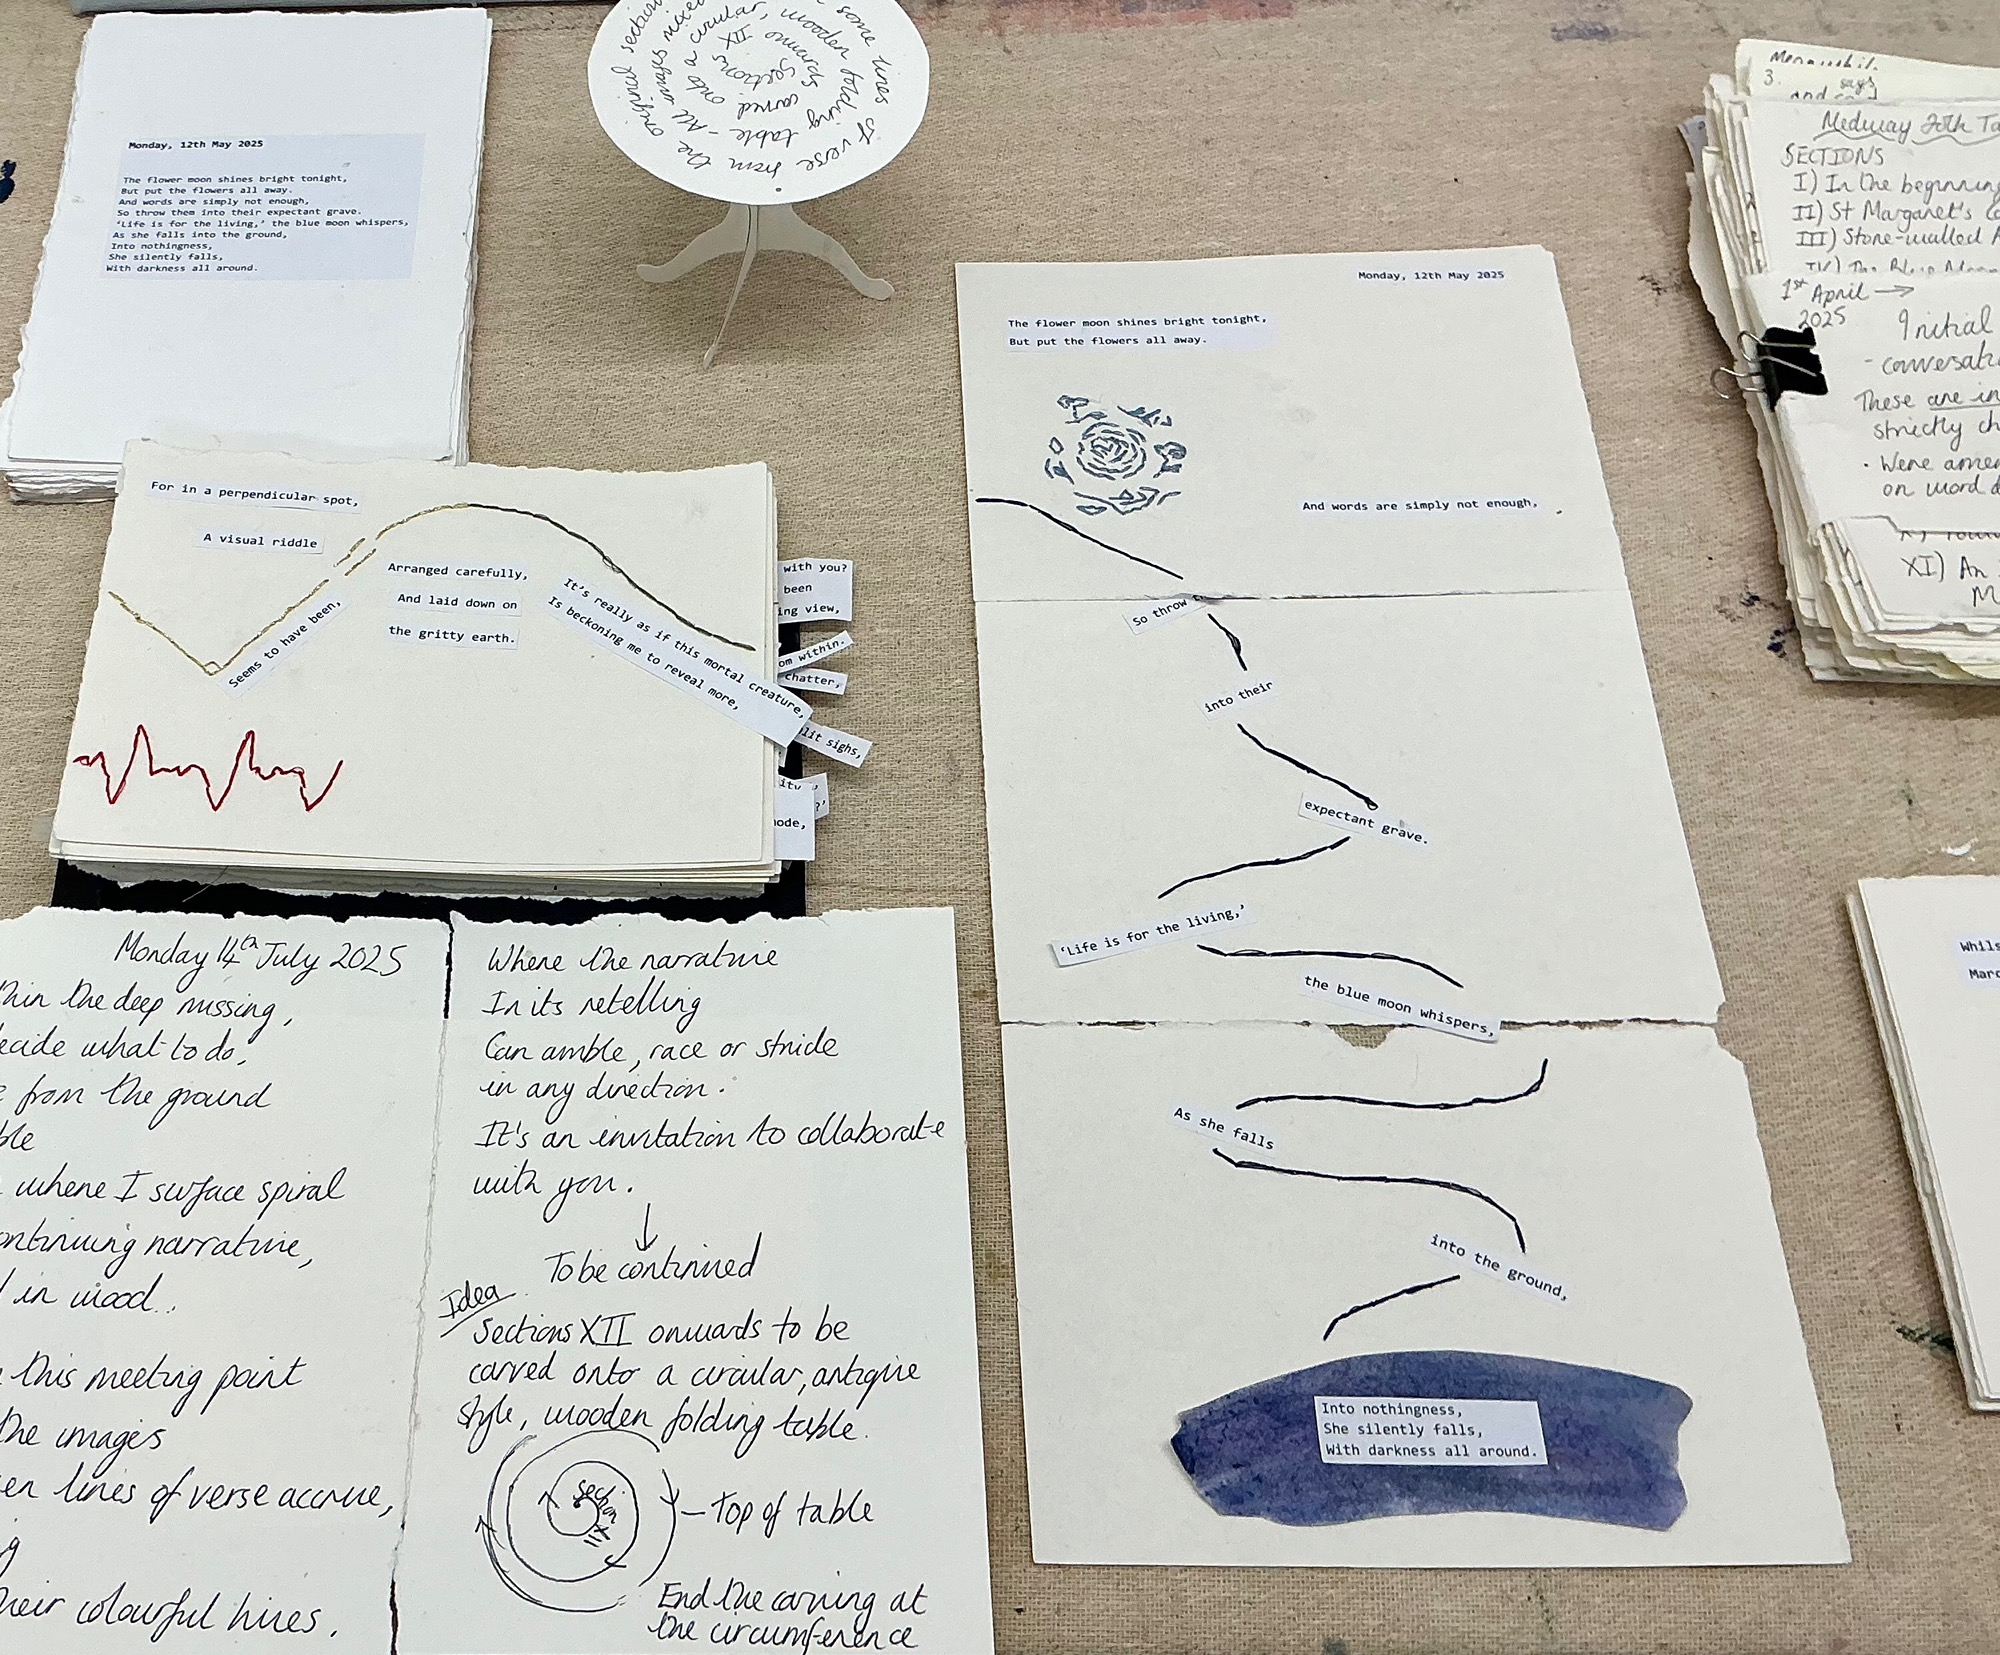 Monday, 12th May 2025
The flower moon shines bright tonight,
But put the flowers all away.
And words are simply not enough,
So throw them into their expectant grave.
‘Life is for the living,’ the blue moon whispers,
As she falls into the ground,
Into nothingness,
She silently falls,
With darkness all around.
some lines
of verse from the
original
sections
XII onwards
carved onto a circular,
wooden folding table - All
Meanwhile
3.
says
Medway 20th
SECTIONS
I) In the beginning
II) St Margaret's
III) Stone-walled
IV) The
1st April →
2025
Initial
- conversati
These are in
strictly ch
• Were amen
on word
XI) An
For in a perpendicular spot,
A visual riddle
Seems to have been,
Arranged carefully,
And laid down on
the gritty earth.
It’s really as if this mortal creature,
Is beckoning me to reveal more,
with you?
been
ing view,
om within.
chatter,
lit sighs,
ode,
Monday, 12th May 2025
The flower moon shines bright tonight,
But put the flowers all away.
And words are simply not enough,
So throw
into their
expectant grave.
‘Life is for the living,’
the blue moon whispers,
As she falls
into the ground,
Into nothingness,
She silently falls,
With darkness all around.
Monday 14th July 2025
hin the deep missing,
ecide what to do,
from the ground
ble
where I surface spiral
ontinuing narrative,
in wood.
this meeting point
the images
en lines of verse accrue,
g
heir colourful hires.
Where the narrative
In its retelling
Can amble, race or stride
in any direction.
It's an invitation to collaborate
with you.
↓
To be continued
Idea
Sections XII onwards to be
carved onto a circular, antique
style, wooden folding table.
Section XII
- Top of table
End the carving at
the circumference
Whils
Marc